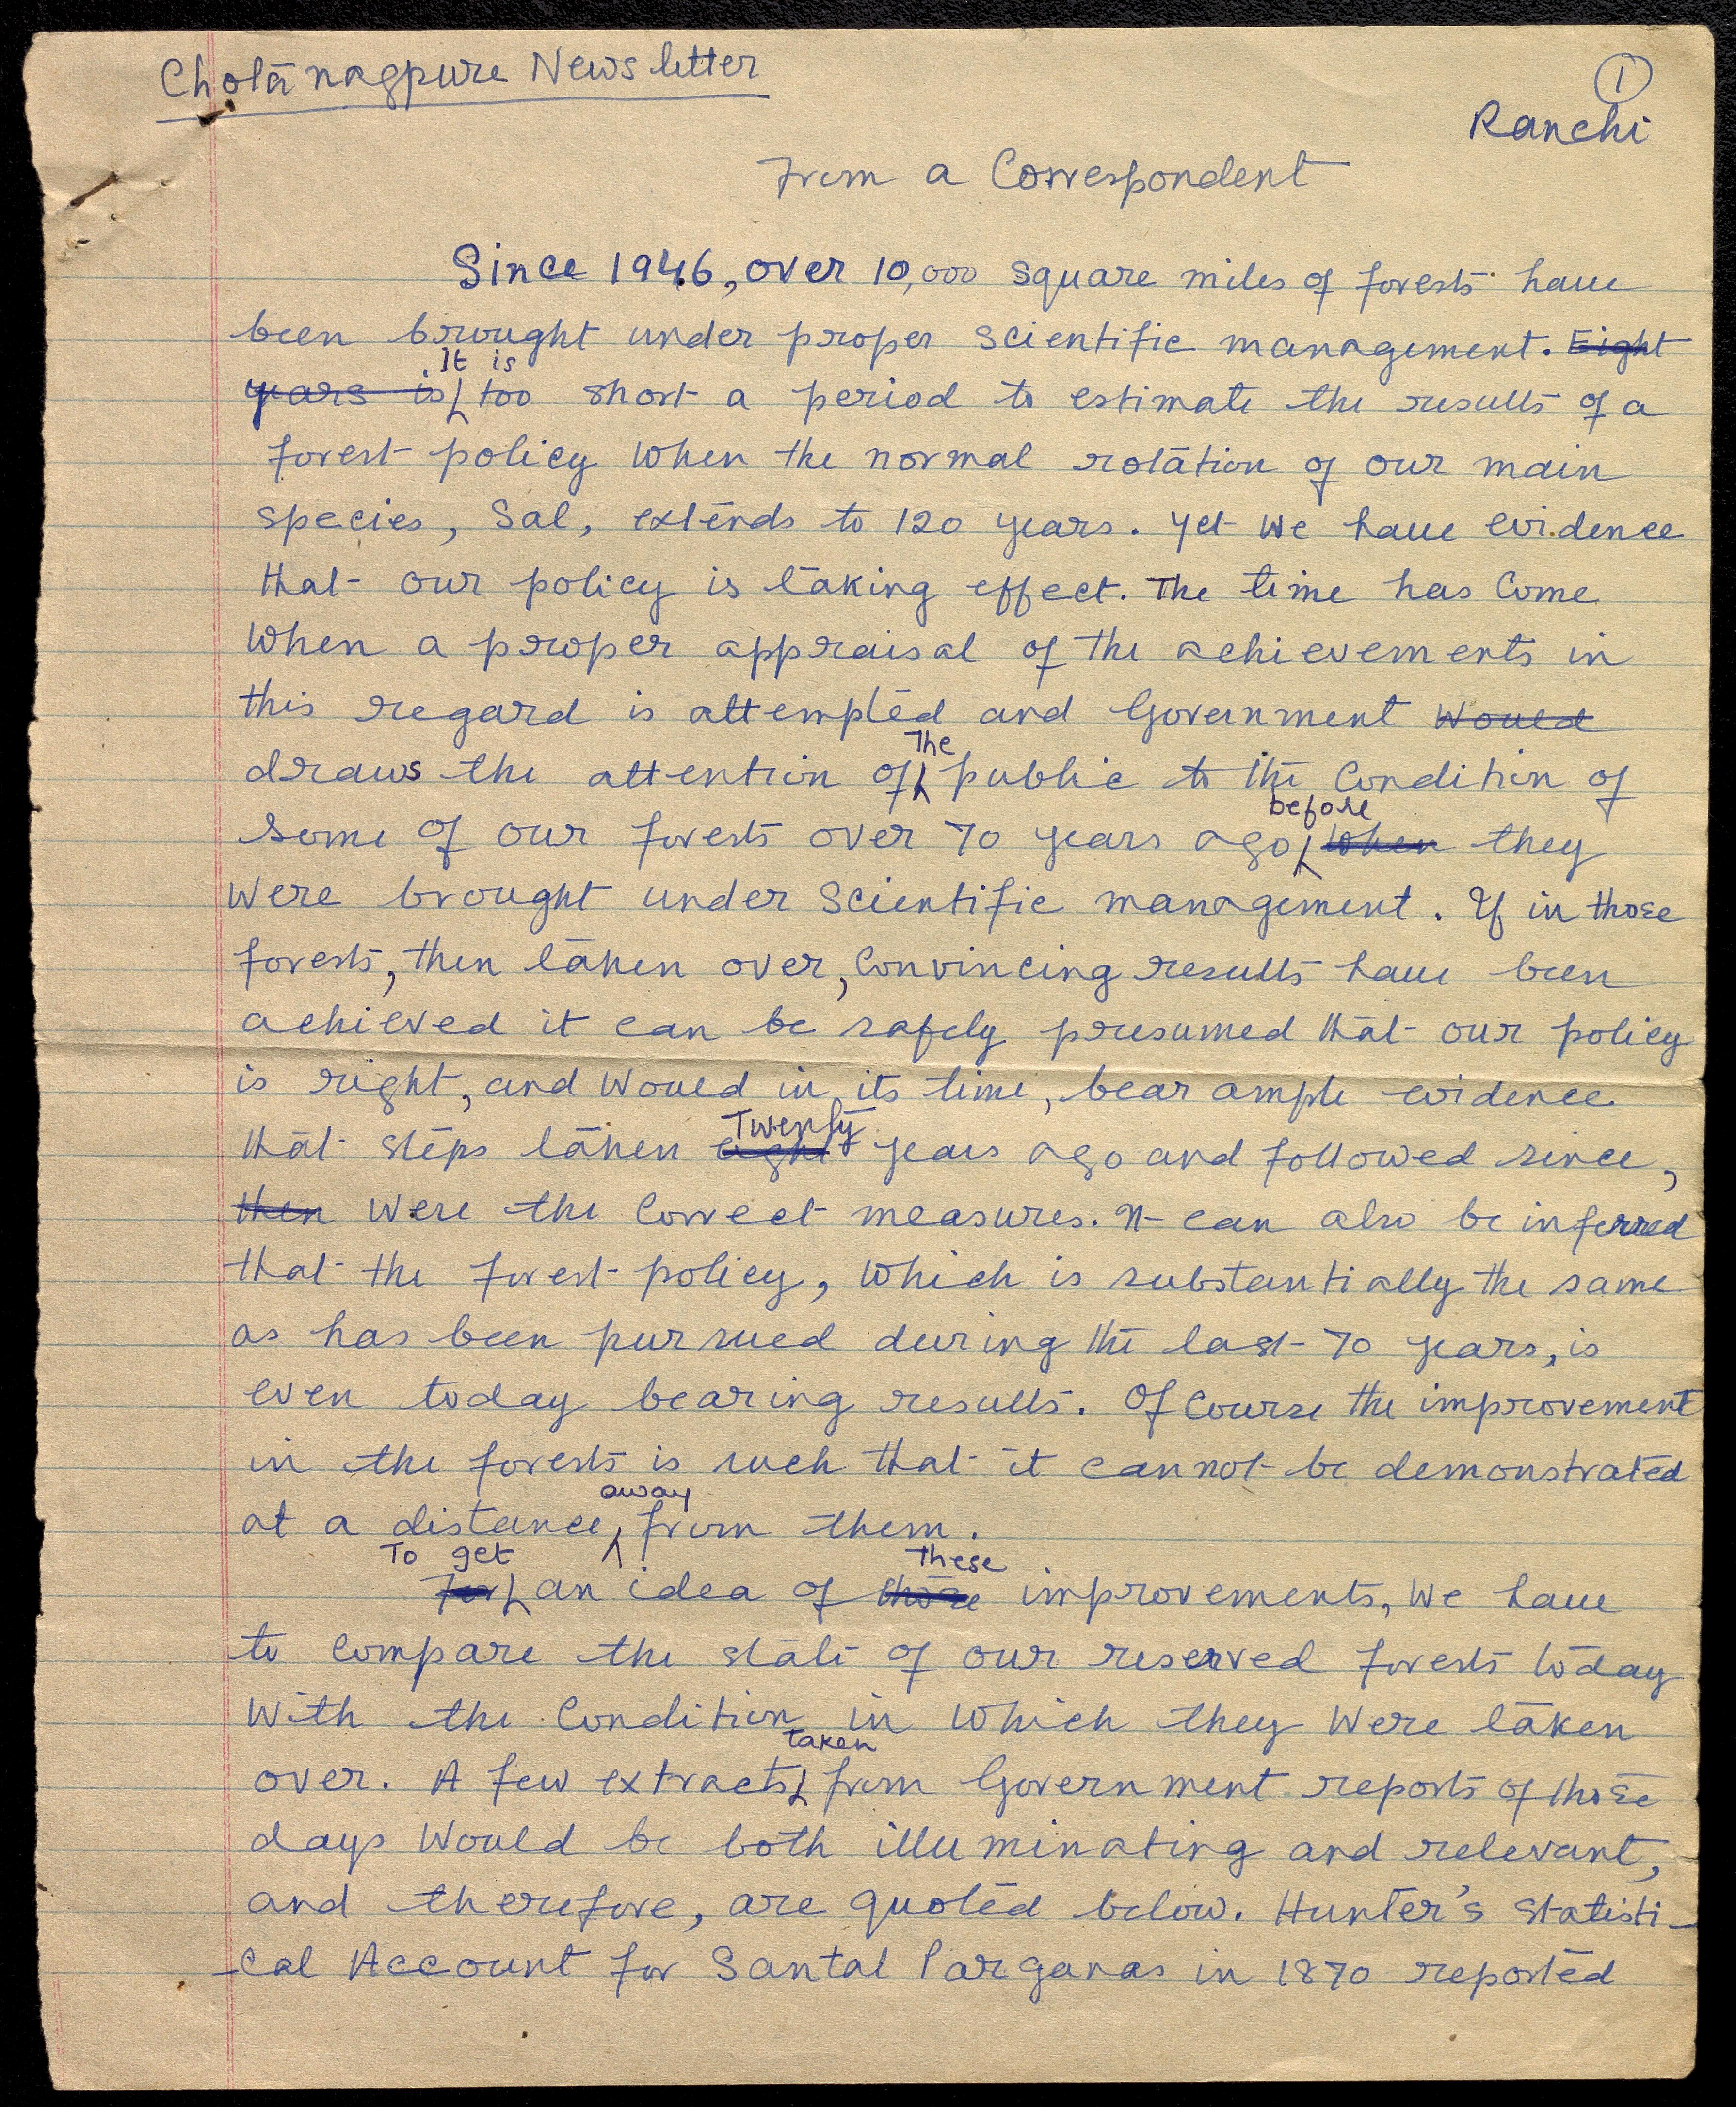 Chotanagpure Newsletter
1
Ranchi
From a Correspondent
Since 1946, over 10,000 square miles of forests have
been brought under proper scientific management. Eight
It is
years is too short a period to estimate the results of a
forest policy when the normal rotation of our main
species, Sal, extends to 120 years. Yet we have evidence
that our policy is taking effect. The time has come
when a proper appraisal of the achievements in
this regard is attempted and Government would
The
draws the attention of public to the condition of
before
some of our forests over 70 years ago, when they
were brought under scientific management. If in those
forests, then taken over, convincing results have been
achieved it can be safely presumed that our policy
is right, and would in its time, bear ample evidence
Twenty
that steps taken eight years ago and followed since,
then were the correct measures. It can also be inferred
that the forest policy, which is substantially the same
as has been pursued during the last 70 years, is
even today bearing results. Of course the improvement
in the forests is such that it cannot be demonstrated
away
at a distance, from them.
To get these
For an idea of those improvements, we have
to compare the state of our reserved forests today
with the condition in which they were taken
taken
over. A few extracts from Government reports of those
days would be both illuminating and relevant,
and therefore, are quoted below. Hunter's Statisti-
-cal Account for Santal Parganas in 1870 reported